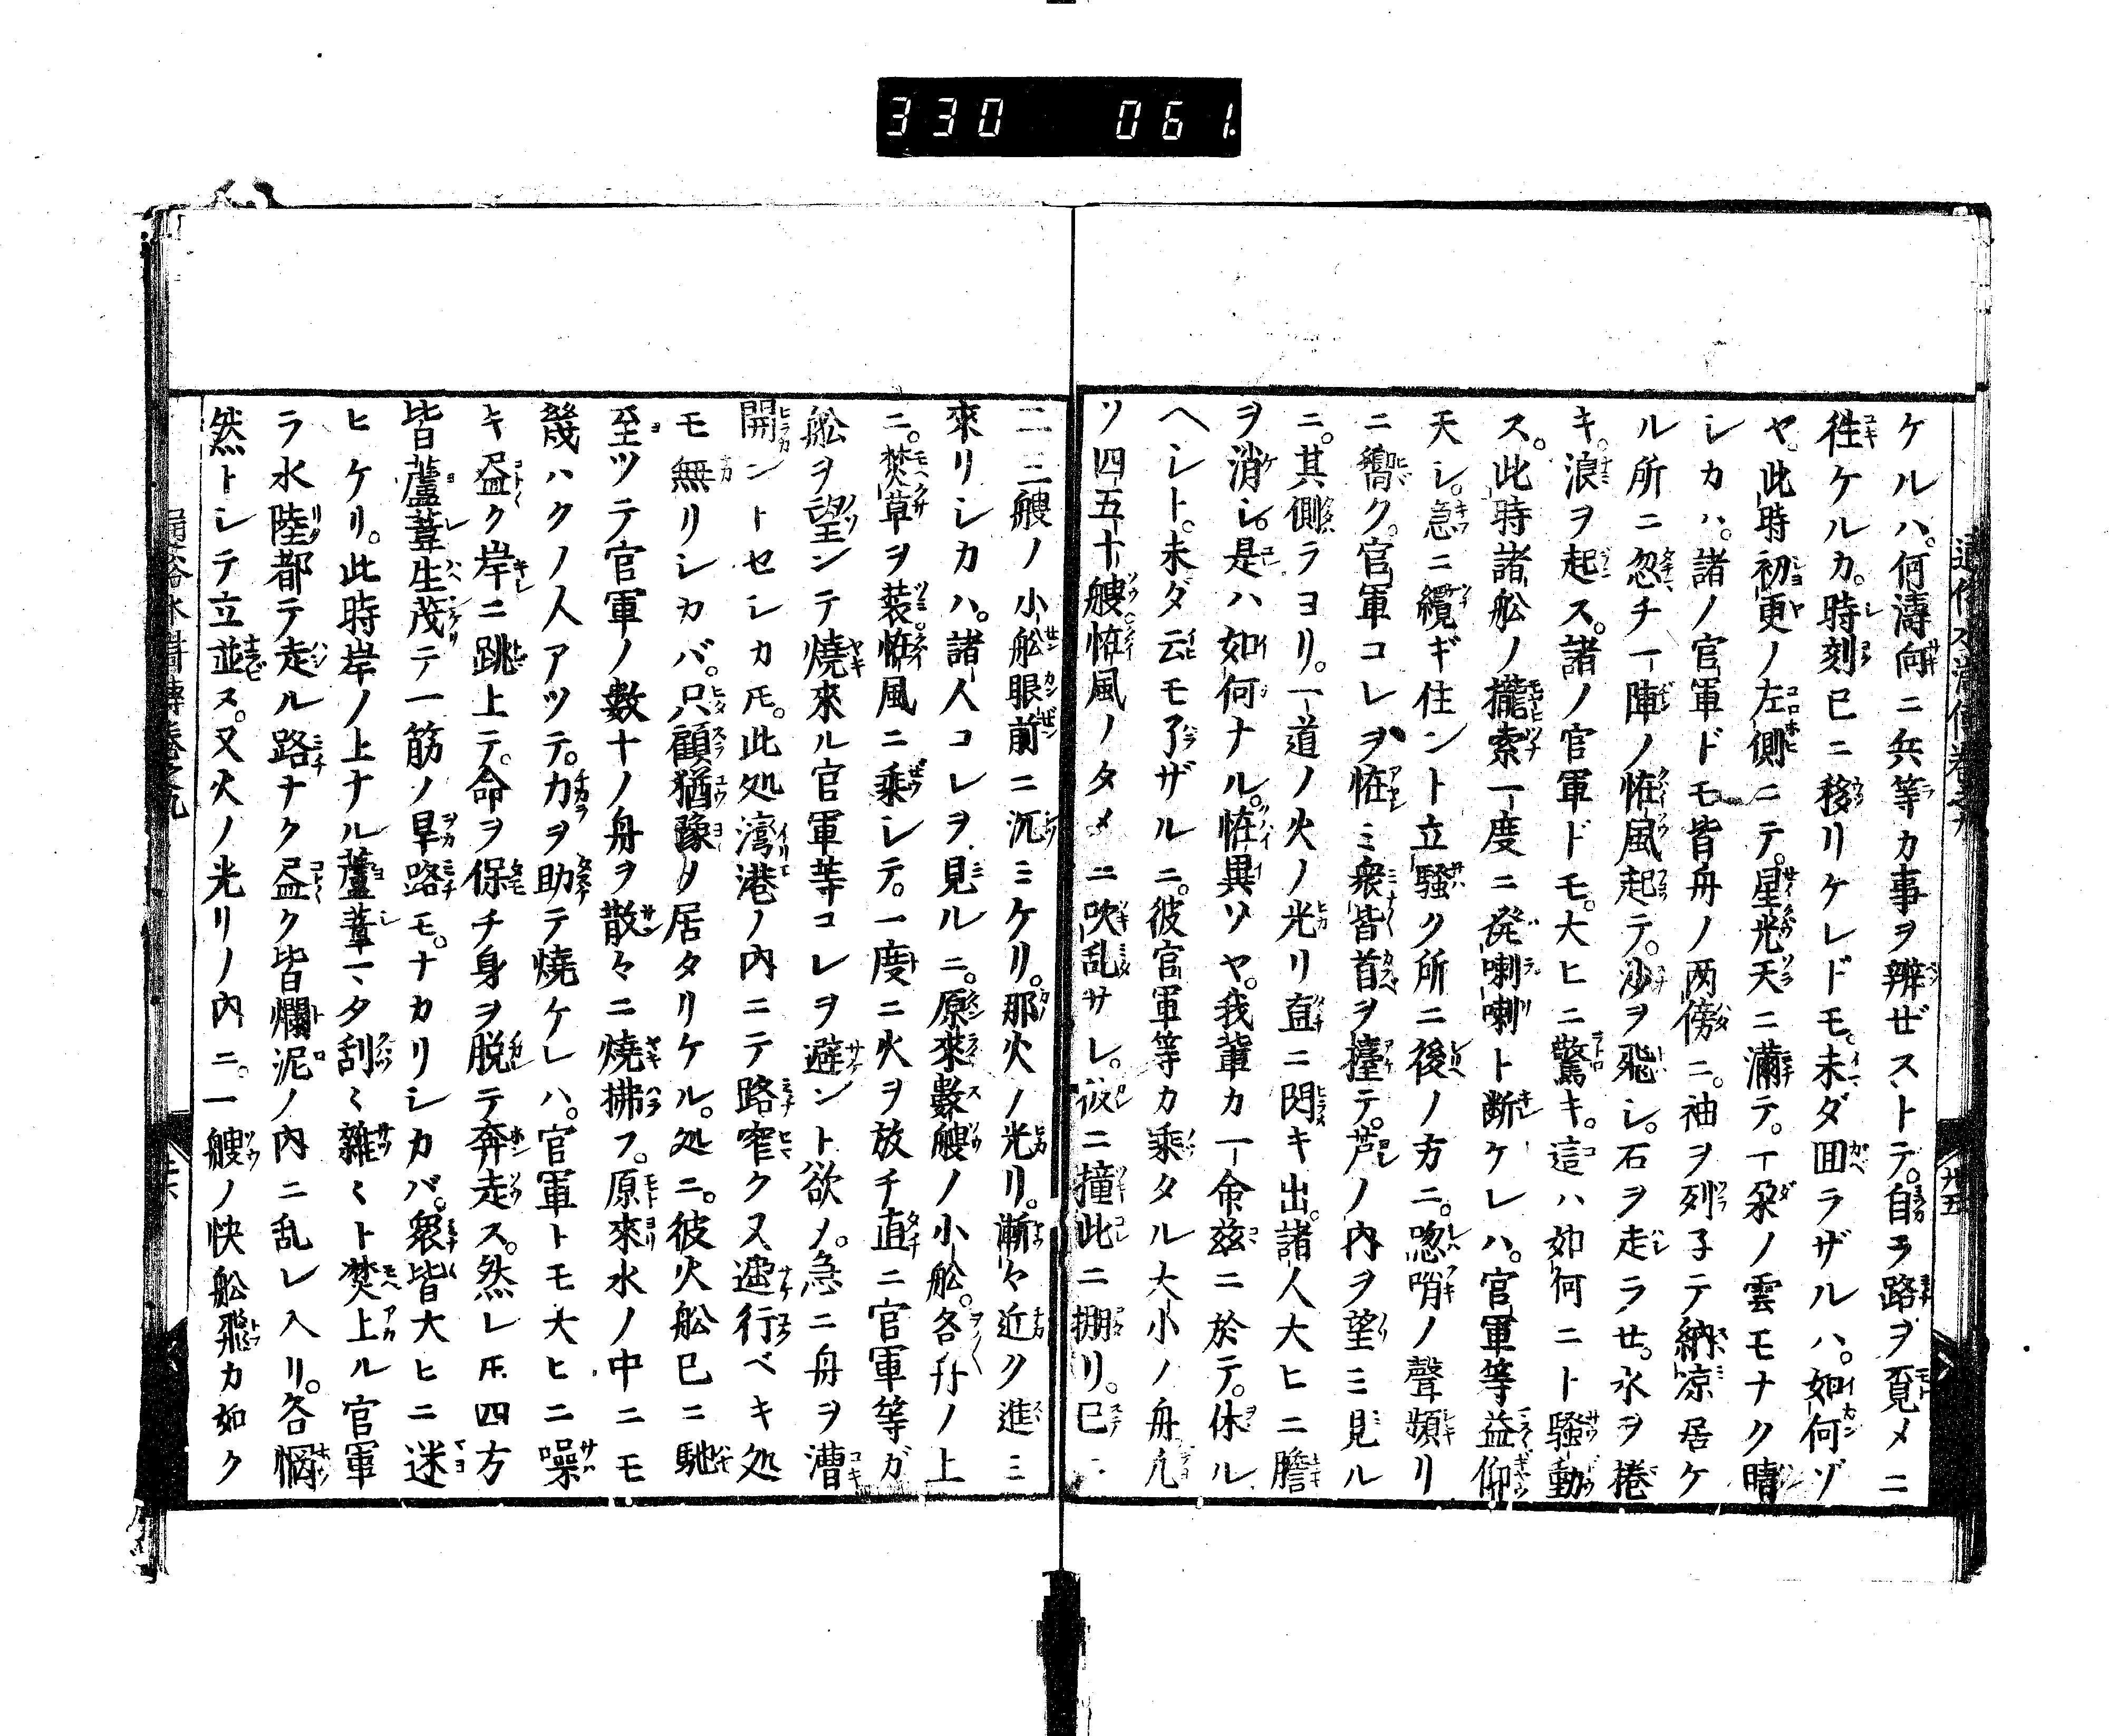 330 061.
ケルハ。何濤向ニ兵等カ事ヲ辨ゼストテ。自ラ路ヲ覔メニ
徃ケルカ。時刻已ニ移リケレドモ。未ダ囬ラザルハ。如何ゾ
ヤ。此時初更ノ左側ニテ。星光天ニ滿テ。一朶ノ雲モナク晴
シカハ。諸ノ官軍ドモ皆舟ノ両傍ニ。袖ヲ列子テ納凉居ケ
ル所ニ忽チ一陣ノ恠風起テ。沙ヲ飛シ。石ヲ走ラせ。水ヲ捲
キ。浪ヲ起ス。諸ノ官軍ドモ。大ヒニ驚キ。這ハ如何ニト騒動
ス。此時諸舩ノ攏索一度ニ発喇喇ト断ケレハ。官軍等益仰
天シ。急ニ纜ギ住ント立騒ク所ニ後ノ方ニ。惚哨ノ聲頻リ
ニ嚮ク。官軍コレヲ恠ミ衆皆首ヲ擡テ。芦ノ内ヲ望ミ見ル
ニ。其側ラヨリ。一道ノ火ノ光リ直ニ閃キ出。諸人大ヒニ膽
ヲ消シ。是ハ如何ナル。恠異ソヤ。我軰カ一命茲ニ於テ。休ル
ヘレト。未ダ云モ了ザルニ。彼官軍等カ乘タル大小ノ舟凢
ソ四五十艘恠風ノタメニ吹乱サレ。彼ニ撞此ニ掤リ。已ニ
二三艘ノ小舩眼前ニ沉ミケリ。那火ノ光リ。漸々近ク進ミ
來リシカハ。諸人コレヲ見ルニ。原來數艘ノ小舩。各舟ノ上
ニ。焚草ヲ裝。恠風ニ乘シテ。一度ニ火ヲ放チ直ニ官軍等ガ
舩ヲ望ンテ燒來ル官軍等コレヲ避ント欲メ。急ニ舟ヲ漕
開ントセシカ𪜈。此処濤港ノ内ニテ路窄ク又遯行ベキ処
モ無リシカバ。只顧猶豫メ居タリケル。処ニ。彼火舩已ニ馳
至ツテ官軍ノ數十ノ舟ヲ散々ニ燒拂フ。原來水ノ中ニモ
幾ハクノ人アツテ。力ヲ助テ燒ケレハ。官軍トモ大ヒニ噪
キ盡ク岸ニ跳上テ。命ヲ保チ身ヲ脱テ奔走ス。然レ𪜈四方
皆蘆葦生茂テ一筋ノ旱路モ。ナカリシカバ。衆皆大ヒニ迷
ヒケリ。此時岸ノ上ナル蘆葦一タ刮〻雜〻ト焚上ル官軍
ラ水陸都テ走ル路ナク盡ク皆爛泥ノ内ニ乱レ入リ。各惱
然トシテ立並ス。又火ノ光リノ内ニ。一艘ノ快舩飛カ如ク